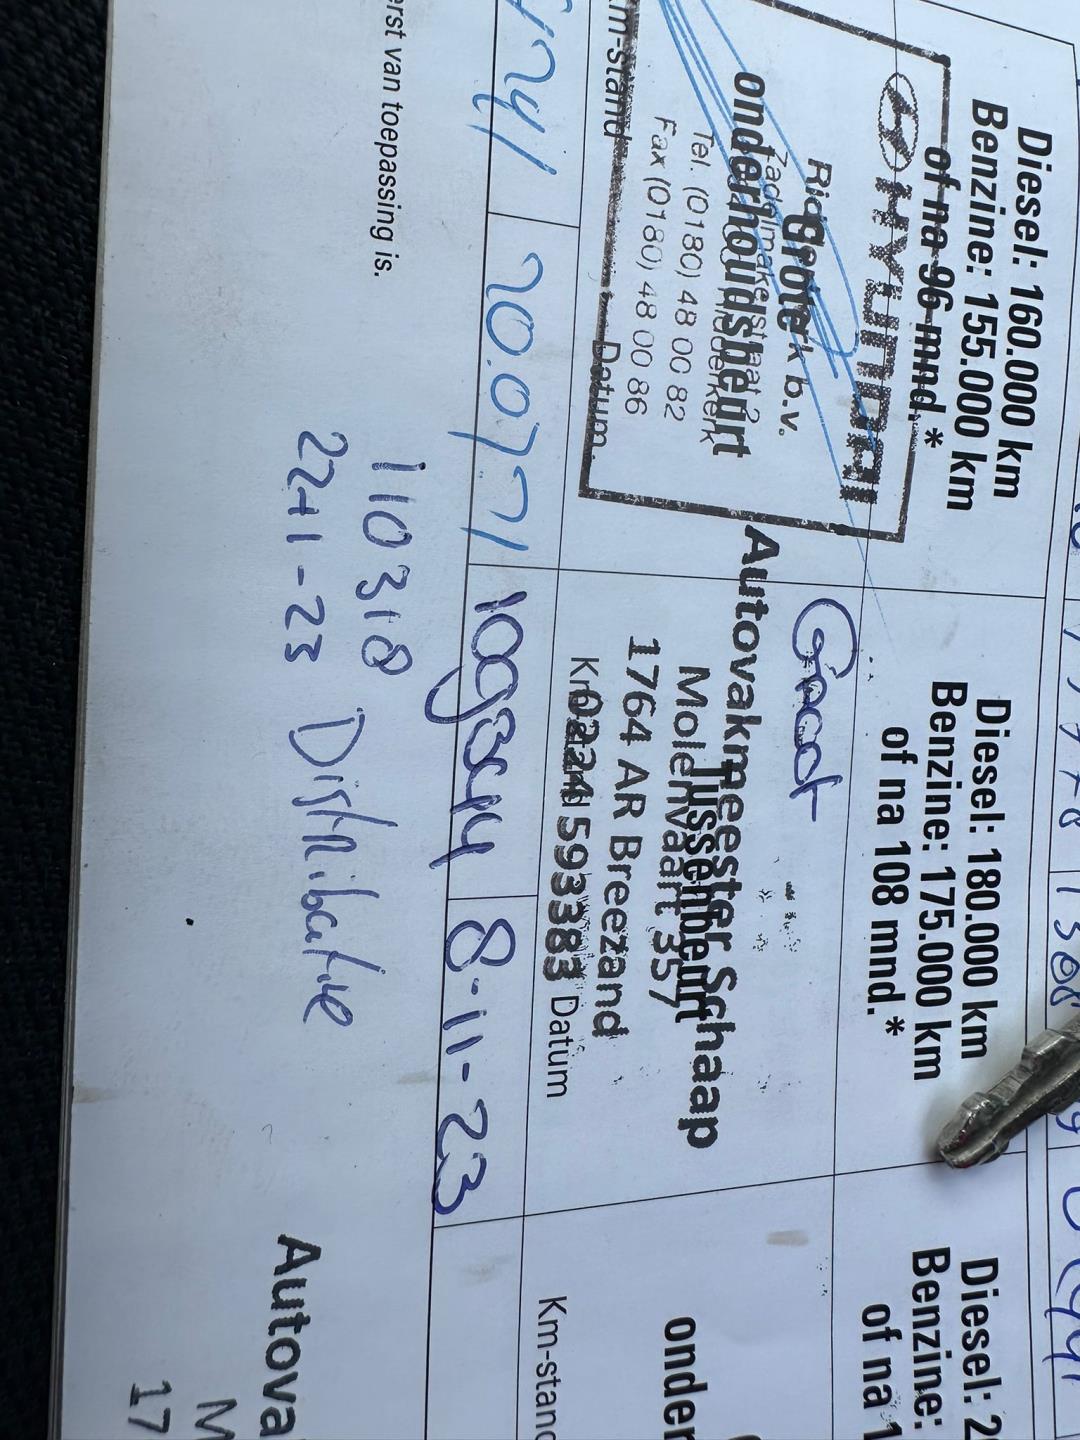 Diesel: 160.000 km
Benzine: 155.000 km
of na 96 mnd.*
HYUNDAI
grote
onderhoudsbeurt
b.v.
Zadelmakerstraat 2
Tel. (0180) 48 00 82
Fax (0180) 48 00 86
Km-stand
Datum
20.07.21
Diesel: 180.000 km
Benzine: 175.000 km
of na 108 mnd.*
Groot
Tussenbeurt
Autovakmeester Schaap
Molenvaart 357
1764 AR Breezand
0224 593383
Datum
8-11-23
erst van toepassing is.
110318
22-11-23 Distributie
Diesel:
Benzine:
of na 1
onder
Km-stand
Autova
M
17